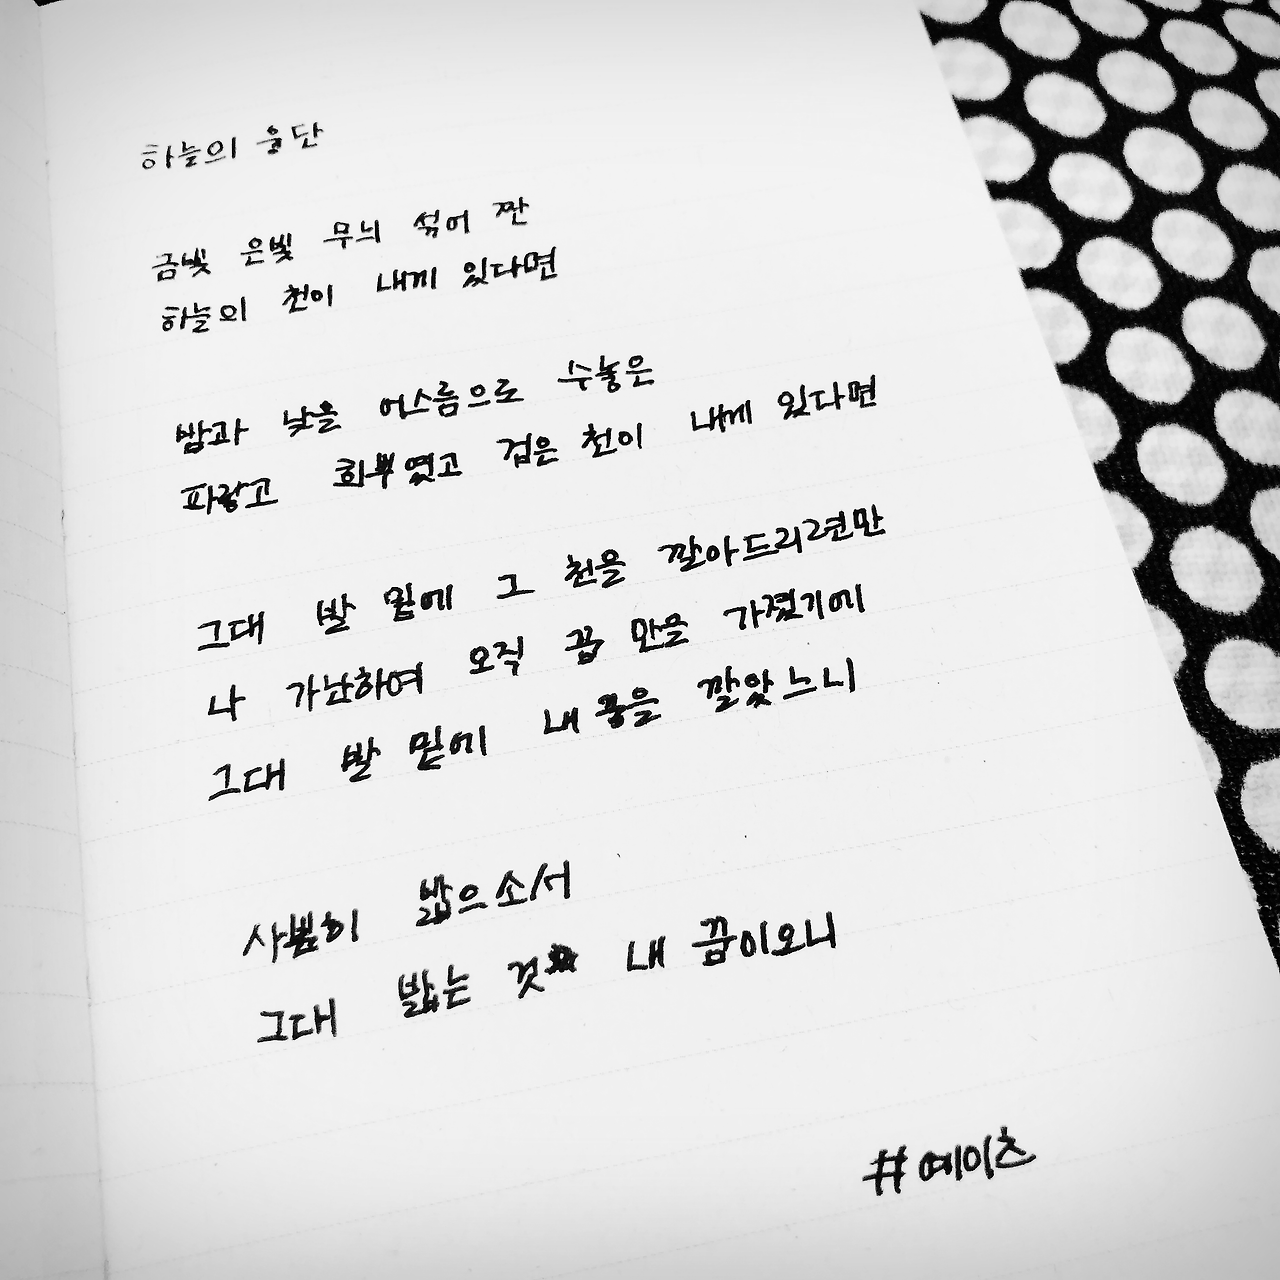 하늘의 융단
금빛 은빛 무늬 섞어 짠
하늘의 천이 내게 있다면
밤과 낮을 어스름으로 수놓은
파랗고 희뿌옇고 검은 천이 내게 있다면
그대 발 밑에 그 천을 깔아드리련만
나 가난하여 오직 꿈 만을 가졌기에
그대 발 밑에 내 꿈을 깔았느니
사뿐히 밟으소서
그대 밟는 것 내 꿈이오니
#예이츠